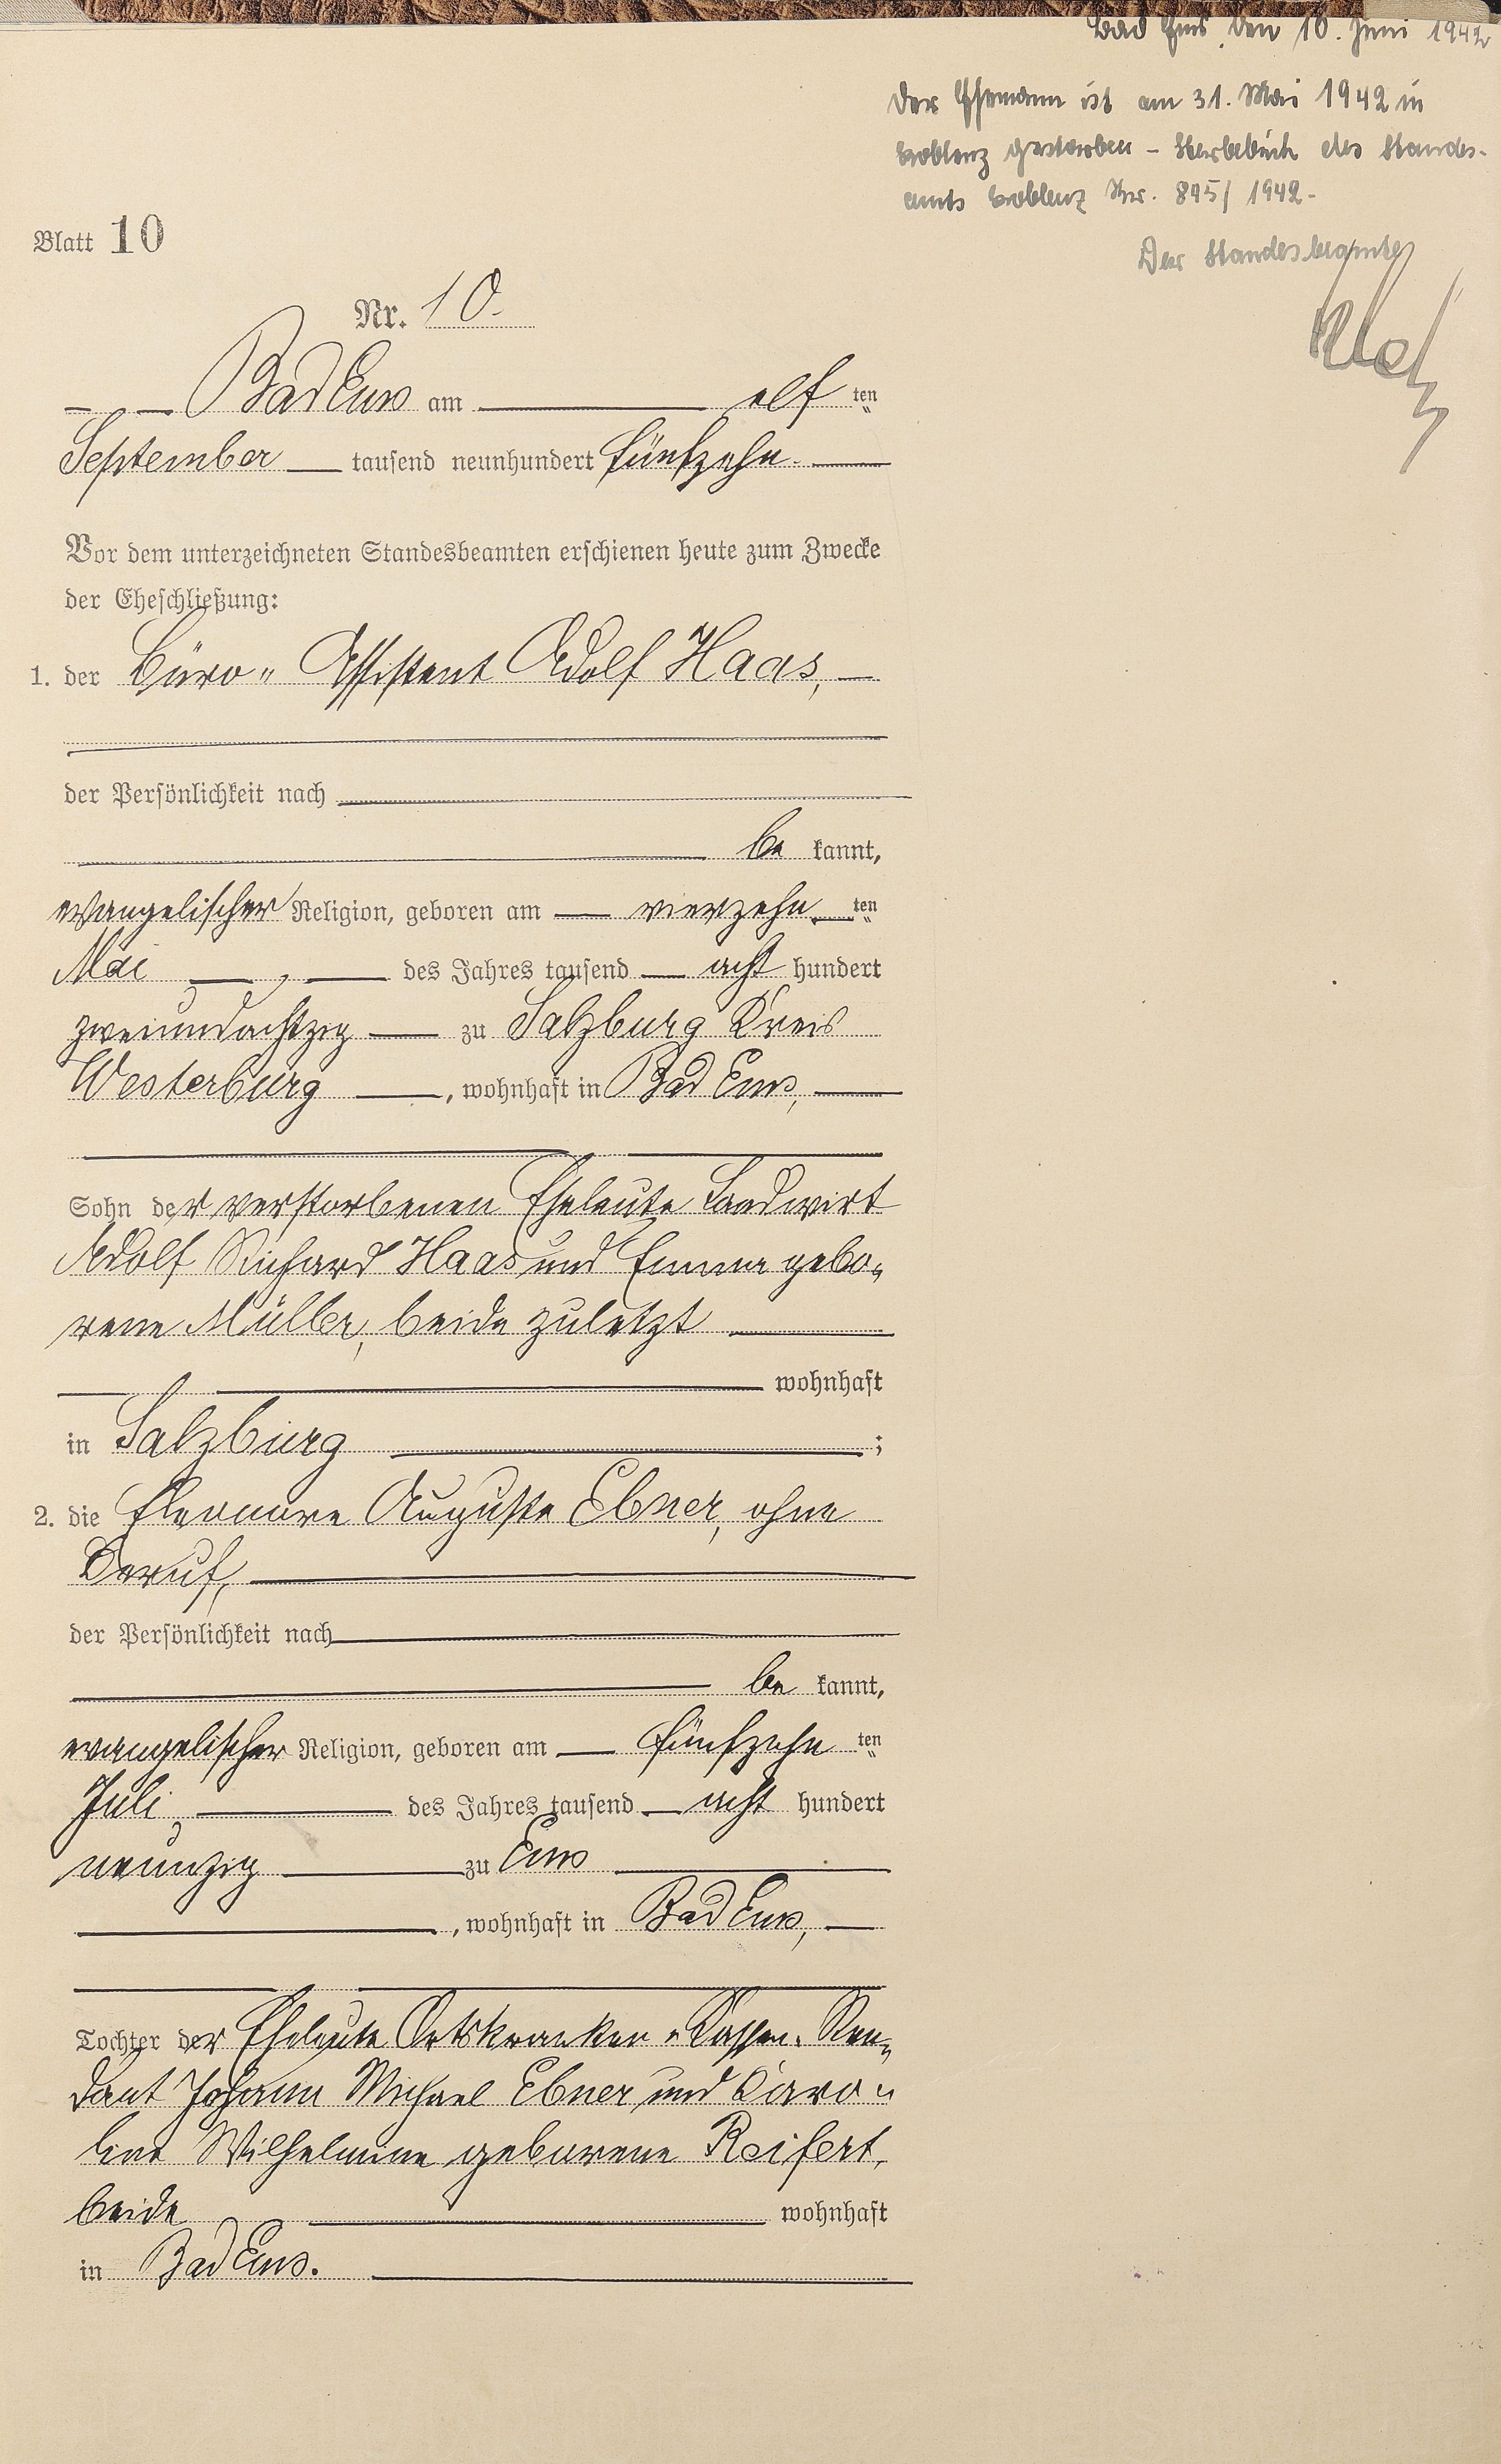 Bad Ems, den 10. Juni 1942
Der Ehemann ist am 31. Mai 1942 in
Koblenz gestorben - Sterbebuch des Standes-
amts Koblenz Nr. 895/1942-
Der Standesbeamte
Blatt 10
Nr. 10.
Bad Ems am elf ten
September tausend neunhundert fünfzehn.
Vor dem unterzeichneten Standesbeamten erschienen heute zum Zwecke
der Eheschließung:
1. der Büro- Assistent Adolf Haas,
der Persönlichkeit nach
be kannt,
evangelischer Religion, geboren am vierzehn ten
Mai des Jahres tausend acht hundert
zweiundachtzig zu Salzburg Kreis
Westerburg, wohnhaft in Bad Ems,
Sohn der verstorbenen Eheleute Landwirt
Adolf Richard Haas und Emma gebo-
rene Müller, beide zuletzt
wohnhaft
in Salzburg;
2. die Eleonore Auguste Ebner, ohne
Beruf,
der Persönlichkeit nach
be kannt,
evangelischer Religion, geboren am fünfzehn ten
Juli des Jahres tausend acht hundert
neunzig zu Ems
, wohnhaft in Bad Ems,
Tochter der Eheleute Ortskranken-Kassen-Ren-
dant Johann Michael Ebner und Karo-
line Wilhelmine geborene Reifert,
beide wohnhaft
in Bad Ems.